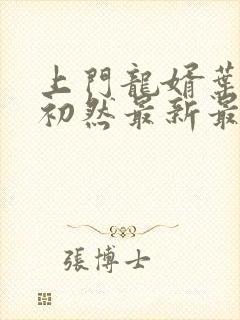 上門龍婿葉
初然最新最
張博士